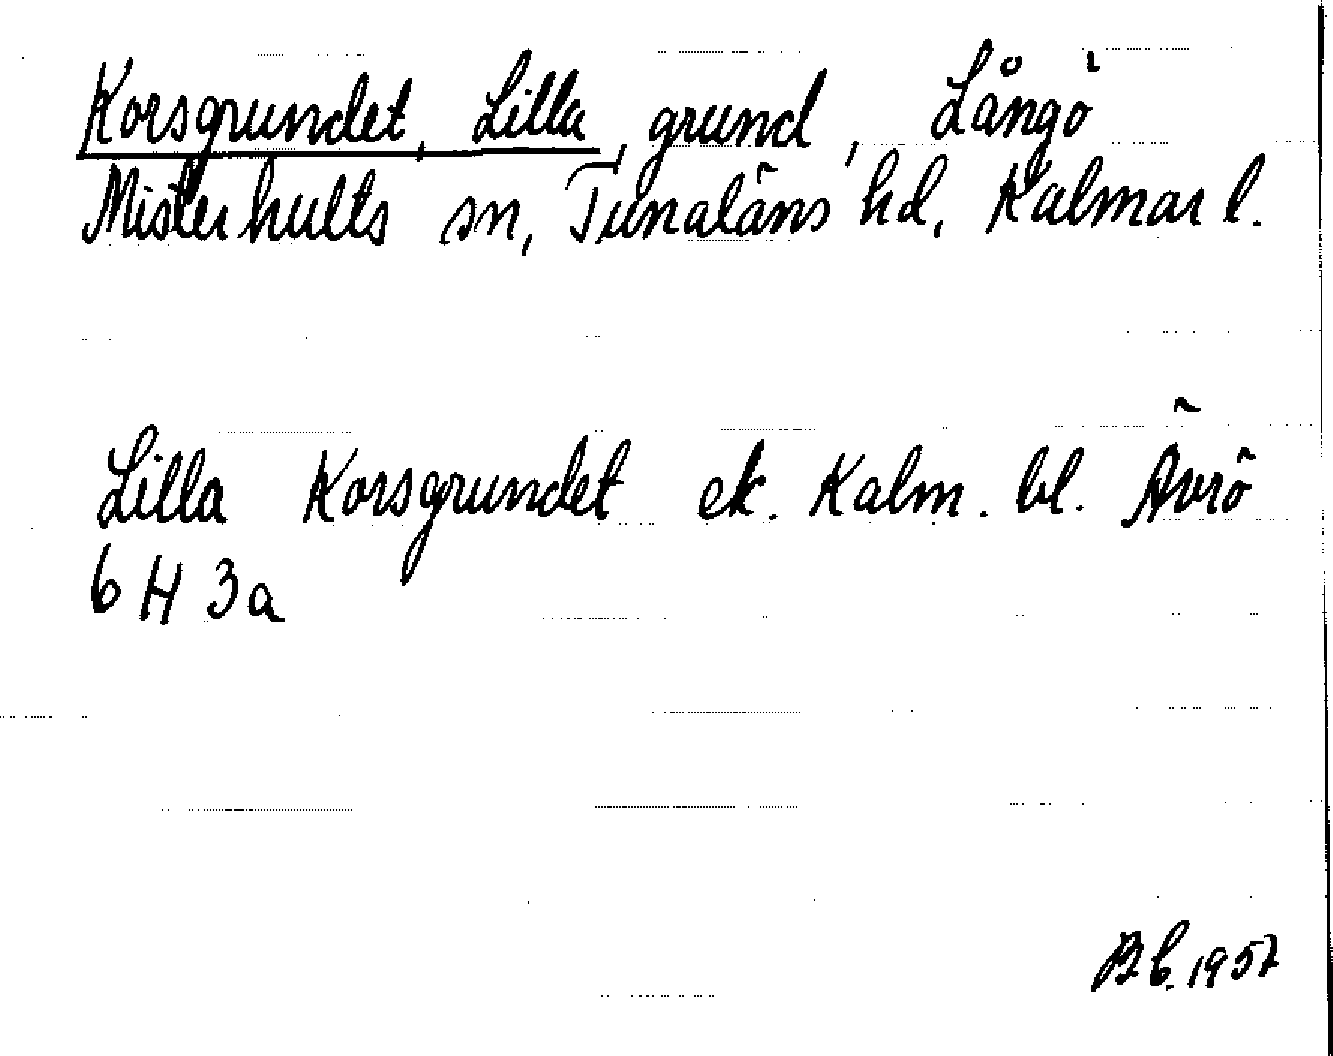 Korsgrundet, Lilla, grund, Långö
Misterhults sn, Tunaläns hd, Kalmar l.
Lilla Korsgrundet ek. Kalm. bl. Ävrö
6 H 3a
Bb. 1957